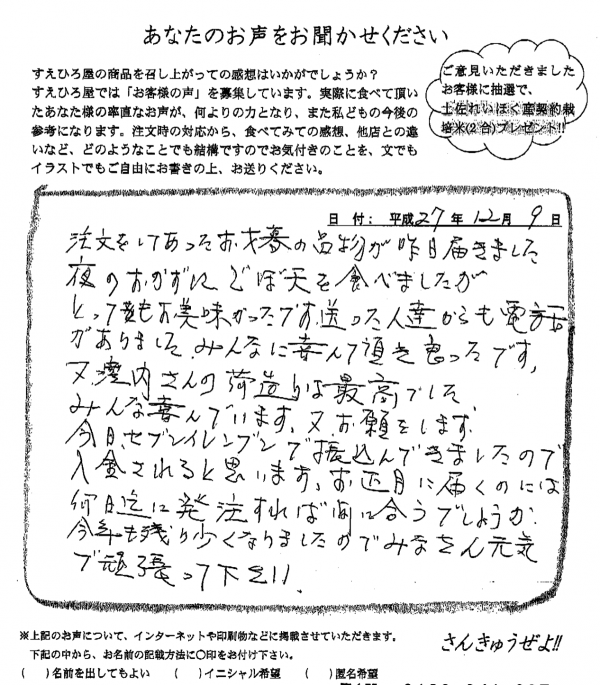 あなたのお声をお聞かせください
すえひろ屋の商品を召し上がっての感想はいかがでしょうか？
すえひろ屋では「お客様の声」を募集しています。実際に食べて頂い
たあなた様の率直なお声が、何よりの力となり、また私どもの今後の
参考になります。注文時の対応から、食べてみての感想、他店との違
いなど、どのようなことでも結構ですのでお気付きのことを、文でも
イラストでもご自由にお書きの上、お送りください。
ご意見いただきました
お客様に抽選で、
土佐れいほく産契約栽
培米(2合)プレゼント!!
日 付： 平成27年12月9日
注文をしてあったお才暮の品物が昨日届きました
夜のおかずにごぼ天を食べましたが
とっても美味かったです。送った人達からも電話
がありました。みんなに喜んで頂き良ったです。
又 内さんの荷造りは最高でした
みんな喜んでいます。又お願をします。
今日、セブンイレブンで振込んできましたので
入金されると思います。お正月に届くのには
何日迄に発注すれば間に合うでしょうか。
今年も残り少くなりましたのでみなさん元気
で頑張って下さい
※上記のお声について、インターネットや印刷物などに掲載させていただきます。
下記の中から、お名前の記載方法に○印をお付け下さい。
(　)名前を出してもよい　(　)イニシャル希望　(　)匿名希望
さんきゅうぜよ!!